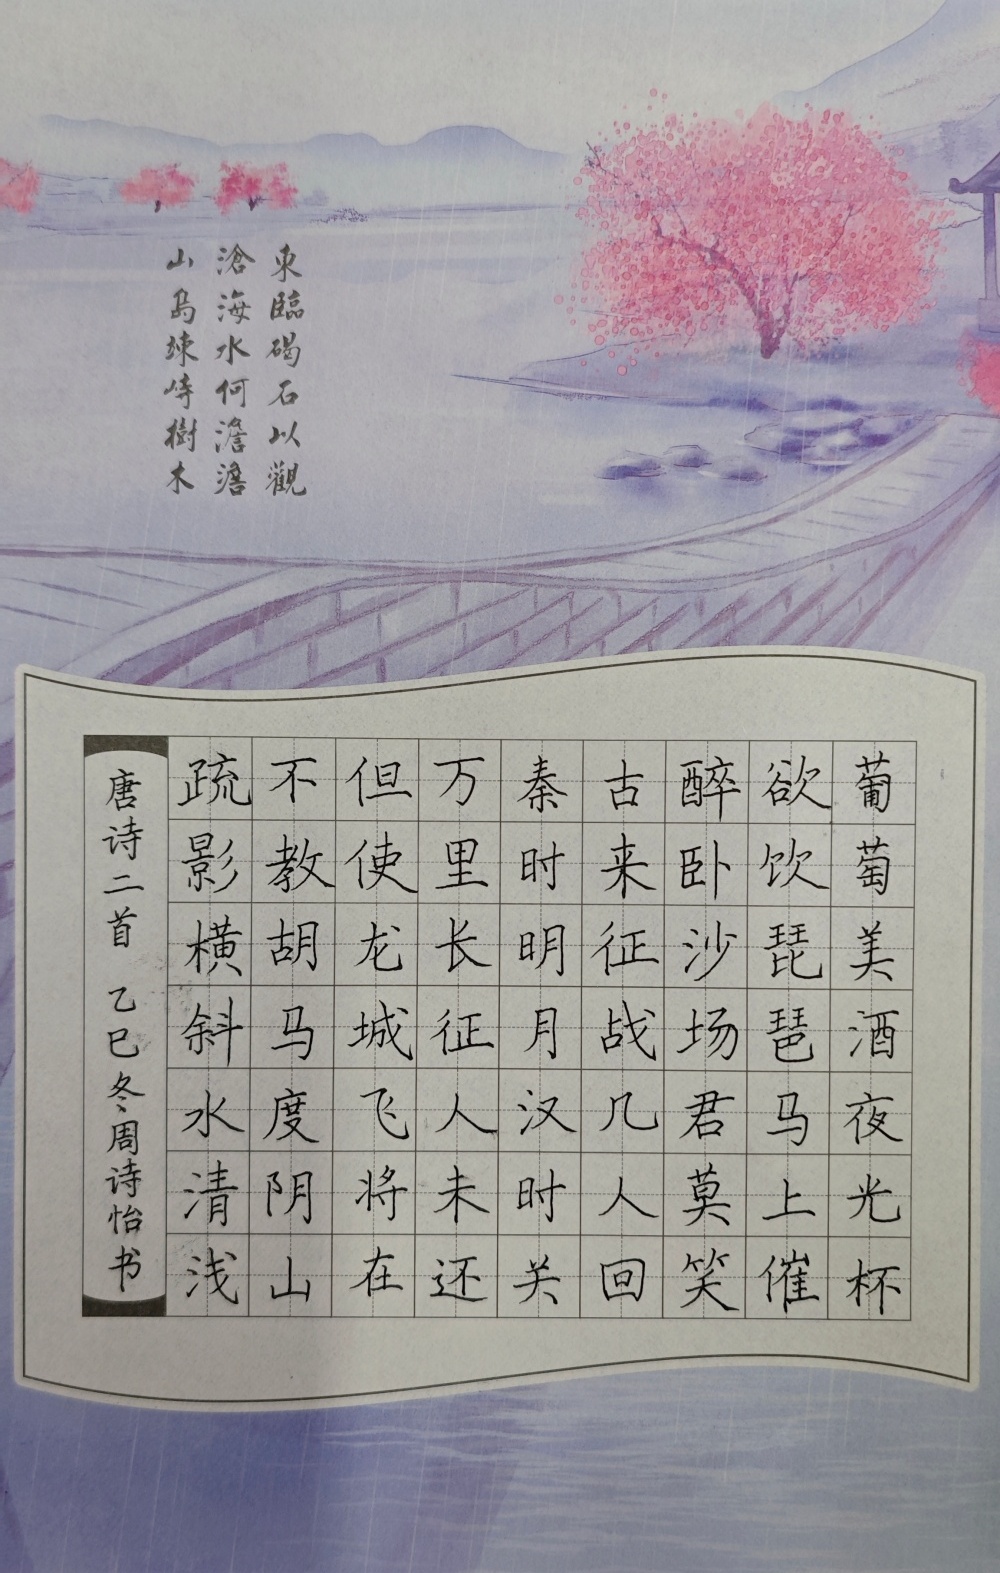 東臨碣石以觀
滄海水何澹澹
山島竦峙樹木
葡萄美酒夜光杯
欲饮琵琶马上催
醉卧沙场君莫笑
古来征战几人回
秦时明月汉时关
万里长征人未还
但使龙城飞将在
不教胡马度阴山
疏影横斜水清浅
唐诗二首 乙巳冬周诗怡书